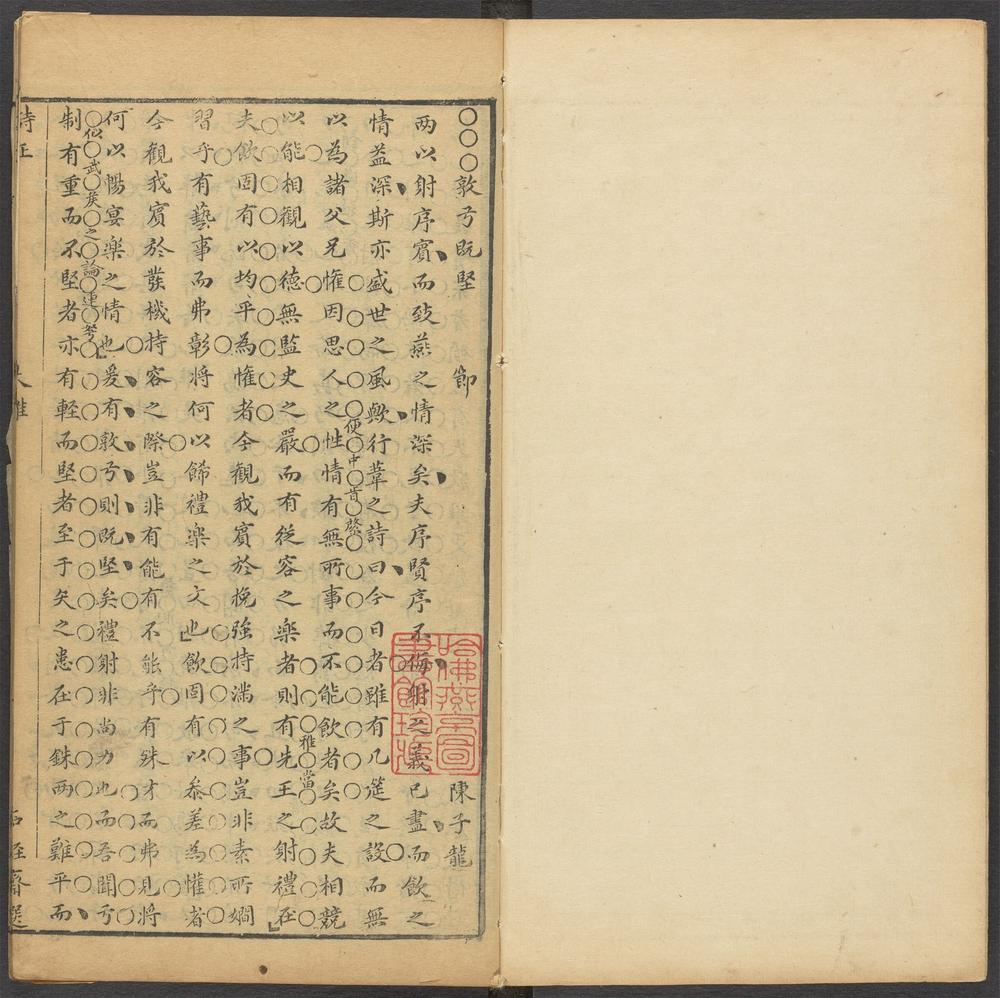 ○○○敦弓既堅 節 陳子龍
两以射序賓而致燕之情深矣夫序賢序不侮射之義已盡而飲之
情益深斯亦盛世之風歟行葦之詩曰今日者雖有几筵之設而無
便中肯綮
以為諸父兄懽因思人之性情有無所事而不能飲者矣故夫相競
雅當
以能相觀以德無監史之嚴而有從容之樂者則有先王之射禮在
夫飲固有以均平為懽者今觀我賓於挽強持滿之事豈非素所嫺
習乎有藝事而弗彰將何以餙禮樂之文也飲固有以叅差為懽者
今觀我賓於發機持容之際豈非有能有不能乎有殊才而弗見將
何以暢宴樂之情也爰有敦弓則既堅矣禮射非尚力也而吾聞弓
似武矦之論連弩
制有重而不堅者亦有軽而堅者至于矢之患在于銖两之難平而
詩五 大雅 石經齋選